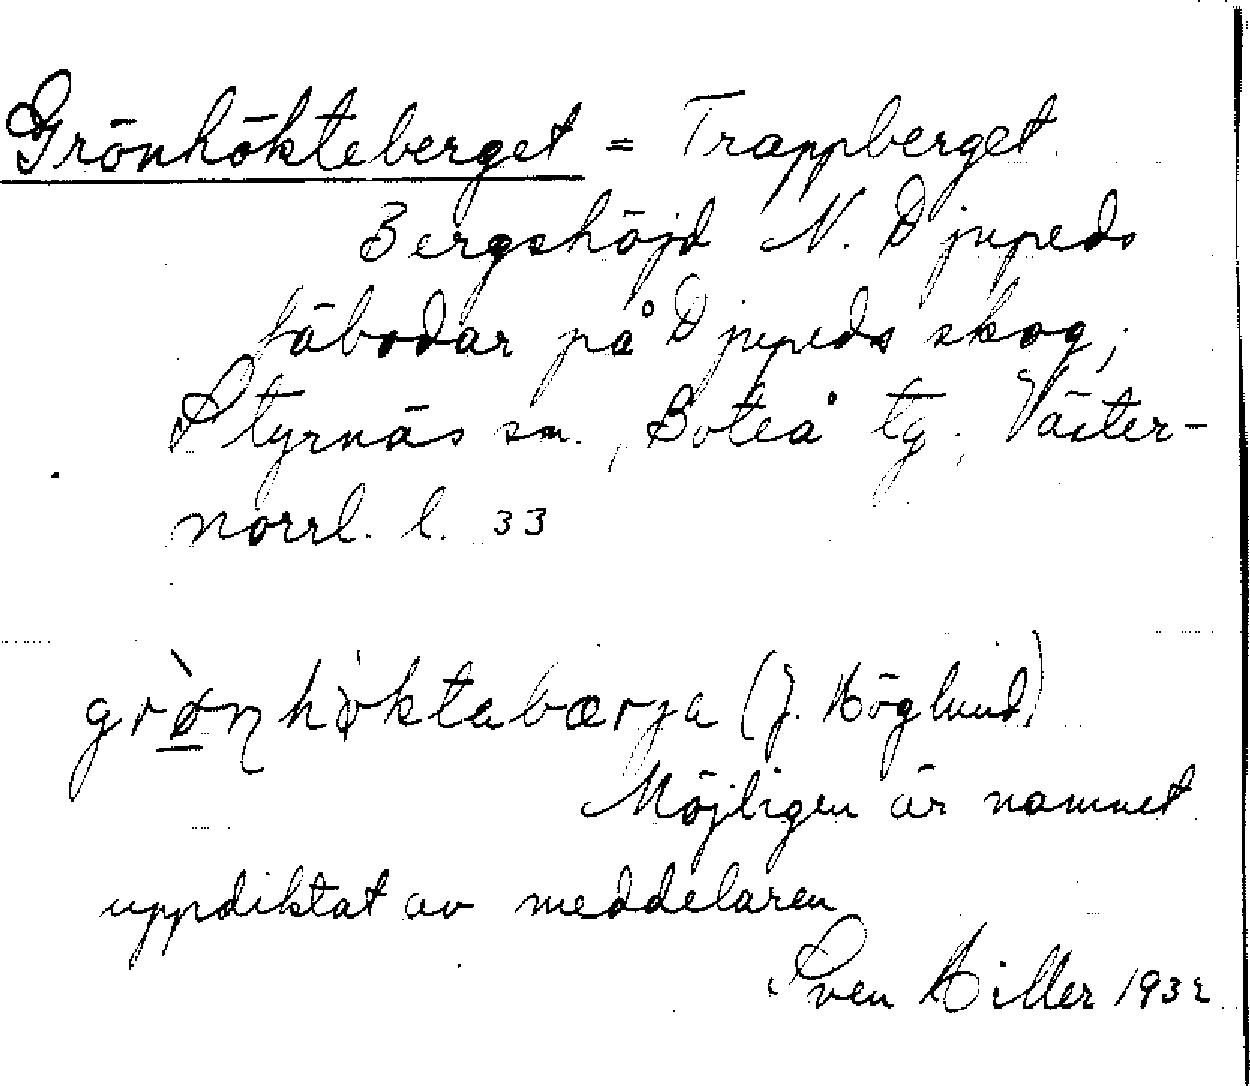 Grönhökteberget = Trappberget
Bergshöjd N. Djupeds
fäbodar på Djupeds skog;
Styrnäs sn., Boteå tg. Väster-
norrl. l. 33
grø̀nhøktabærja (J. Höglund)
Möjligen är namnet
uppdiktat av meddelaren
Sven Hiller 1932